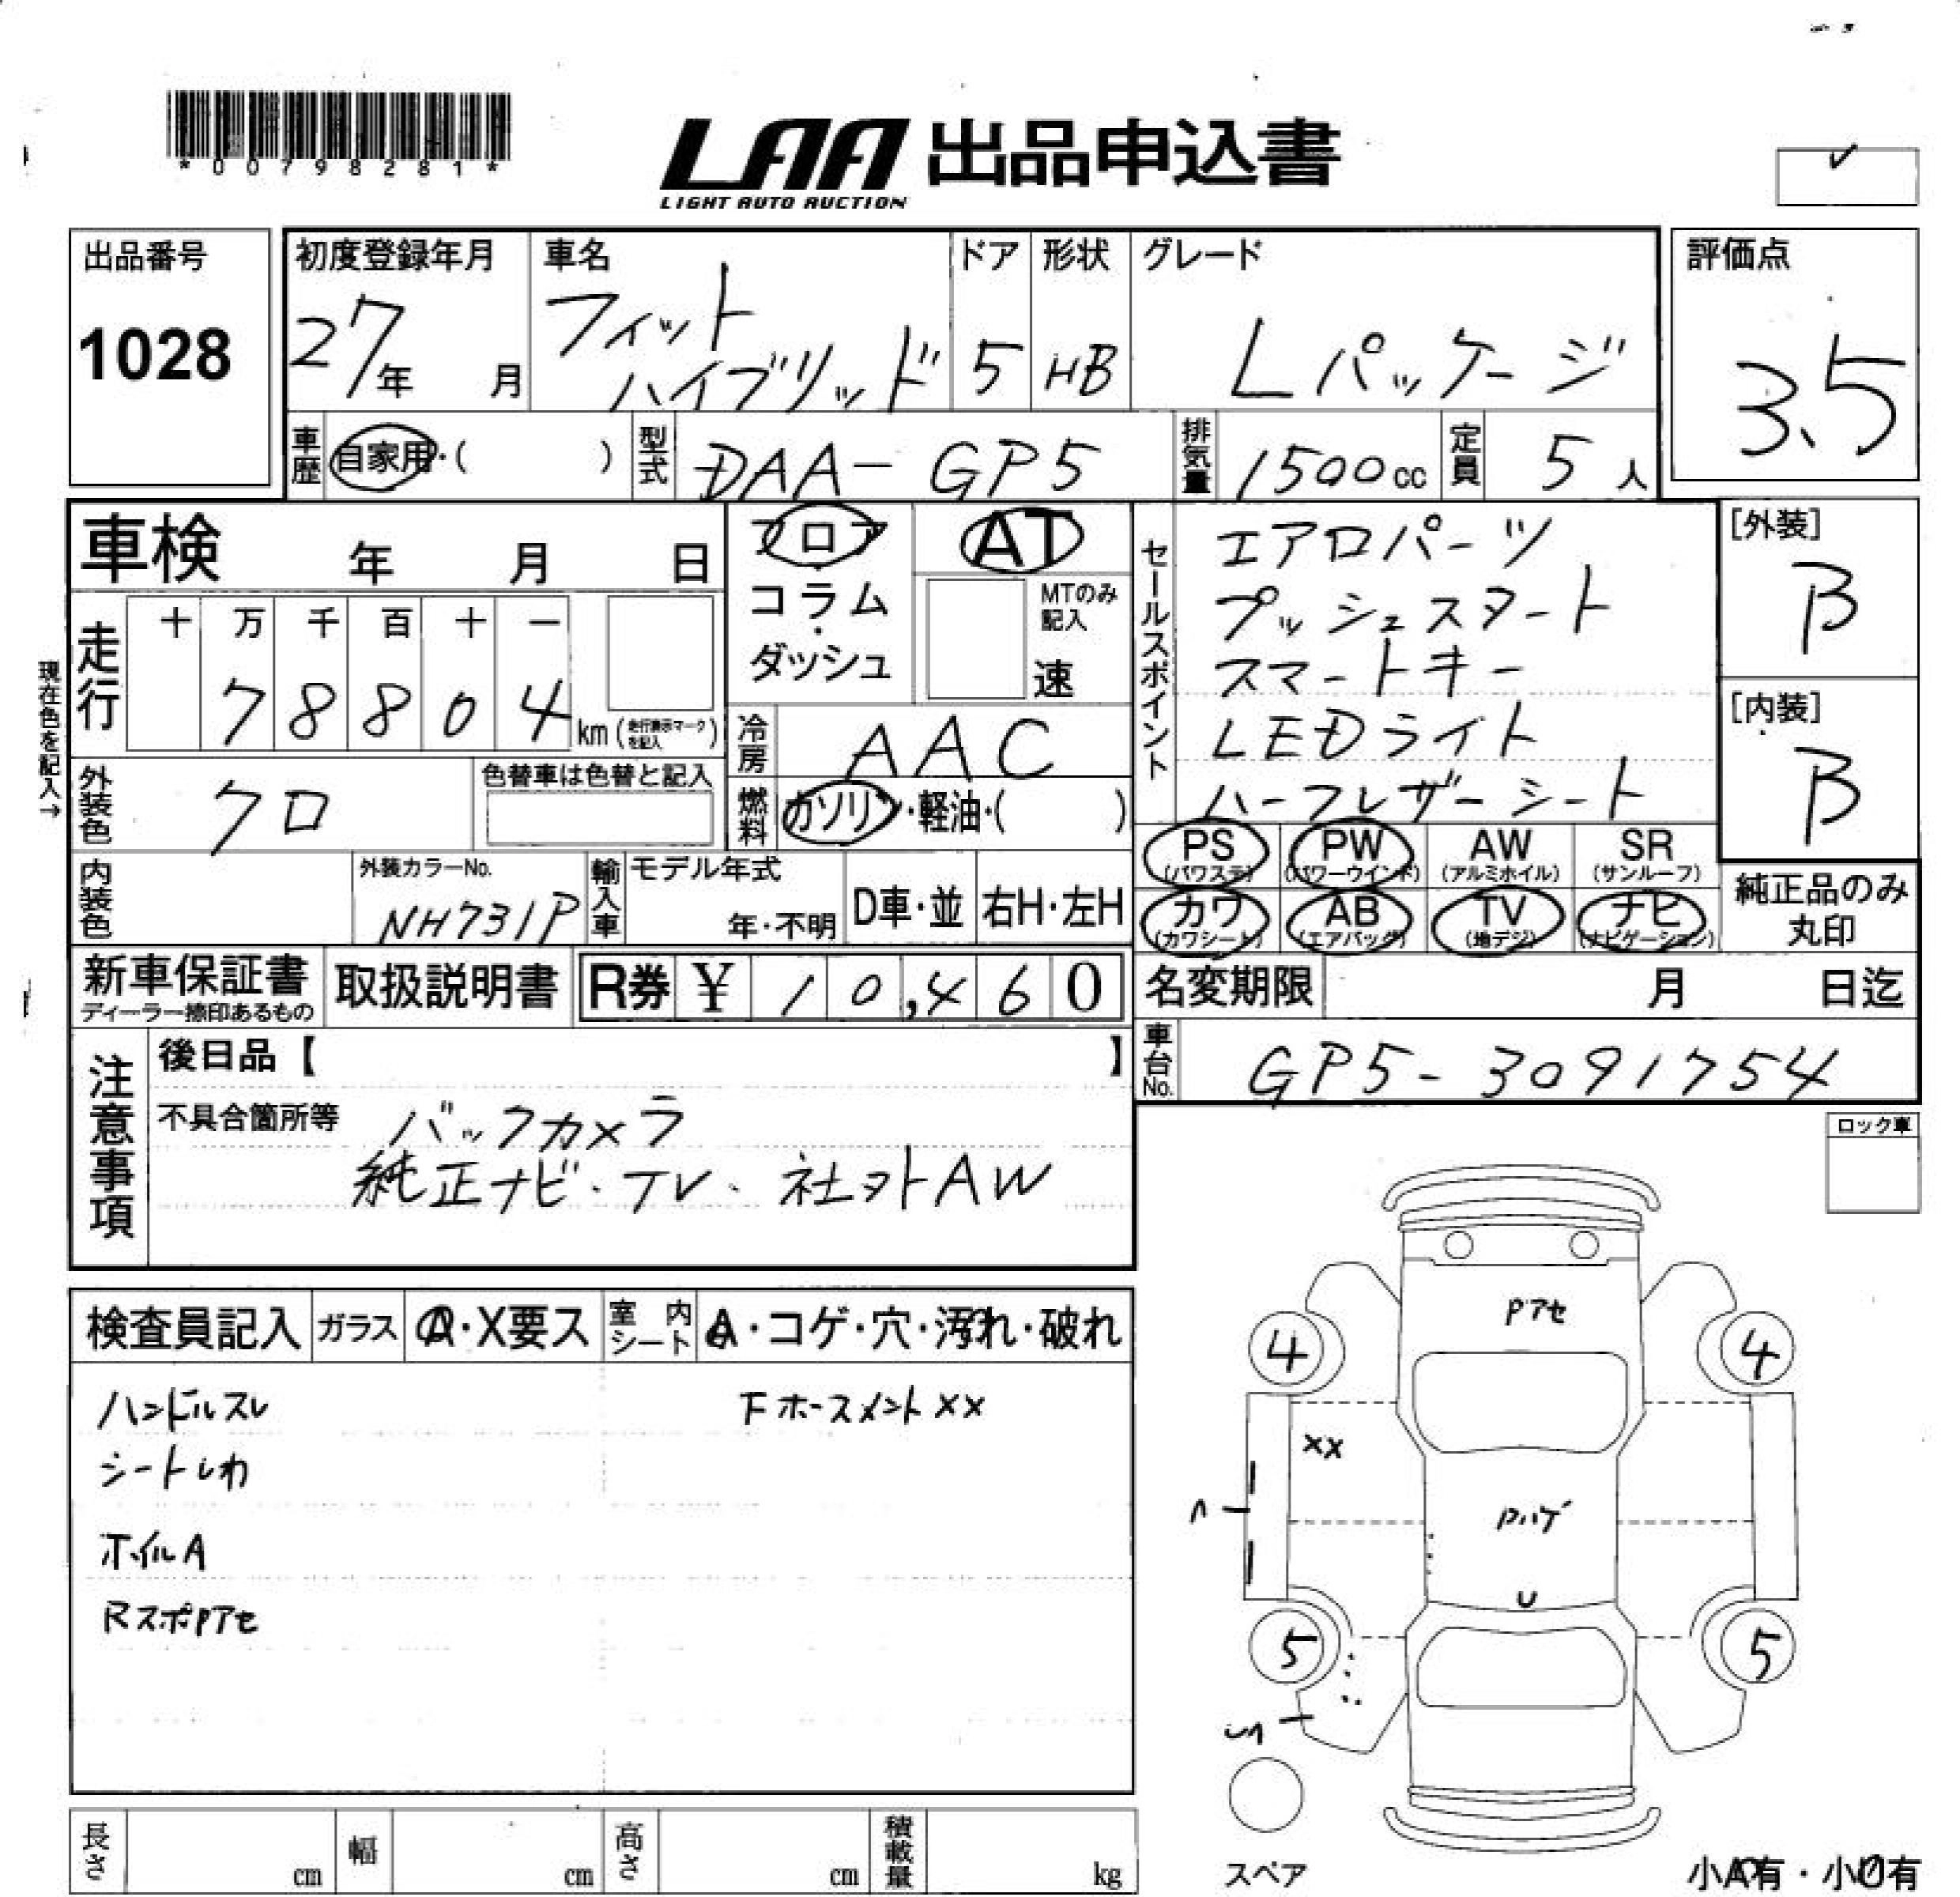 *00798281*
LAA 出品申込書
LIGHT AUTO AUCTION
出品番号
1028
初度登録年月
27年 月
車名
フィット
ハイブリッド
ドア
5
形状
HB
グレード
Lパッケージ
評価点
3.5
車歴 自家用・( )
型式 DAA-GP5
排気量 1500cc
定員 5人
車検 年 月 日
フロア
コラム
・
ダッシュ
AT
MTのみ
記入
速
セールスポイント
エアロパーツ
プッシュスタート
スマートキー
LEDライト
ハーフレザーシート
[外装]
B
[内装]
B
現在色を記入→
走行
十 万 千 百 十 一
7 8 8 0 4 km (走行表示マークを記入)
冷房 AAC
外装色 クロ
色替車は色替と記入
燃料 ガソリン・軽油・( )
内装色
外装カラーNo.
NH731P
輸入車
モデル年式
年・不明
D車・並
右H・左H
PS (パワステ)
PW (パワーウインド)
AW (アルミホイル)
SR (サンルーフ)
カワ (カワシート)
AB (エアバッグ)
TV (地デジ)
ナビ (ナビゲーション)
純正品のみ
丸印
新車保証書
ディーラー捺印あるもの
取扱説明書
R券 ¥ 10,460
名変期限 月 日迄
車台No. GP5-3091754
注意事項
後日品【 】
不具合箇所等 バックカメラ
純正ナビ・TV、社外AW
ロック車
検査員記入 ガラス A・X要ス 室内シート A・コゲ・穴・汚れ・破れ
ハンドルスレ
Fホースメントxx
シートしわ
ホイルA
RスポPアセ
Pアセ
4
4
xx
へ
Pハゲ
U
5
5
スペア
小A有・小U有
長さ cm
幅 cm
高さ cm
積載量 kg